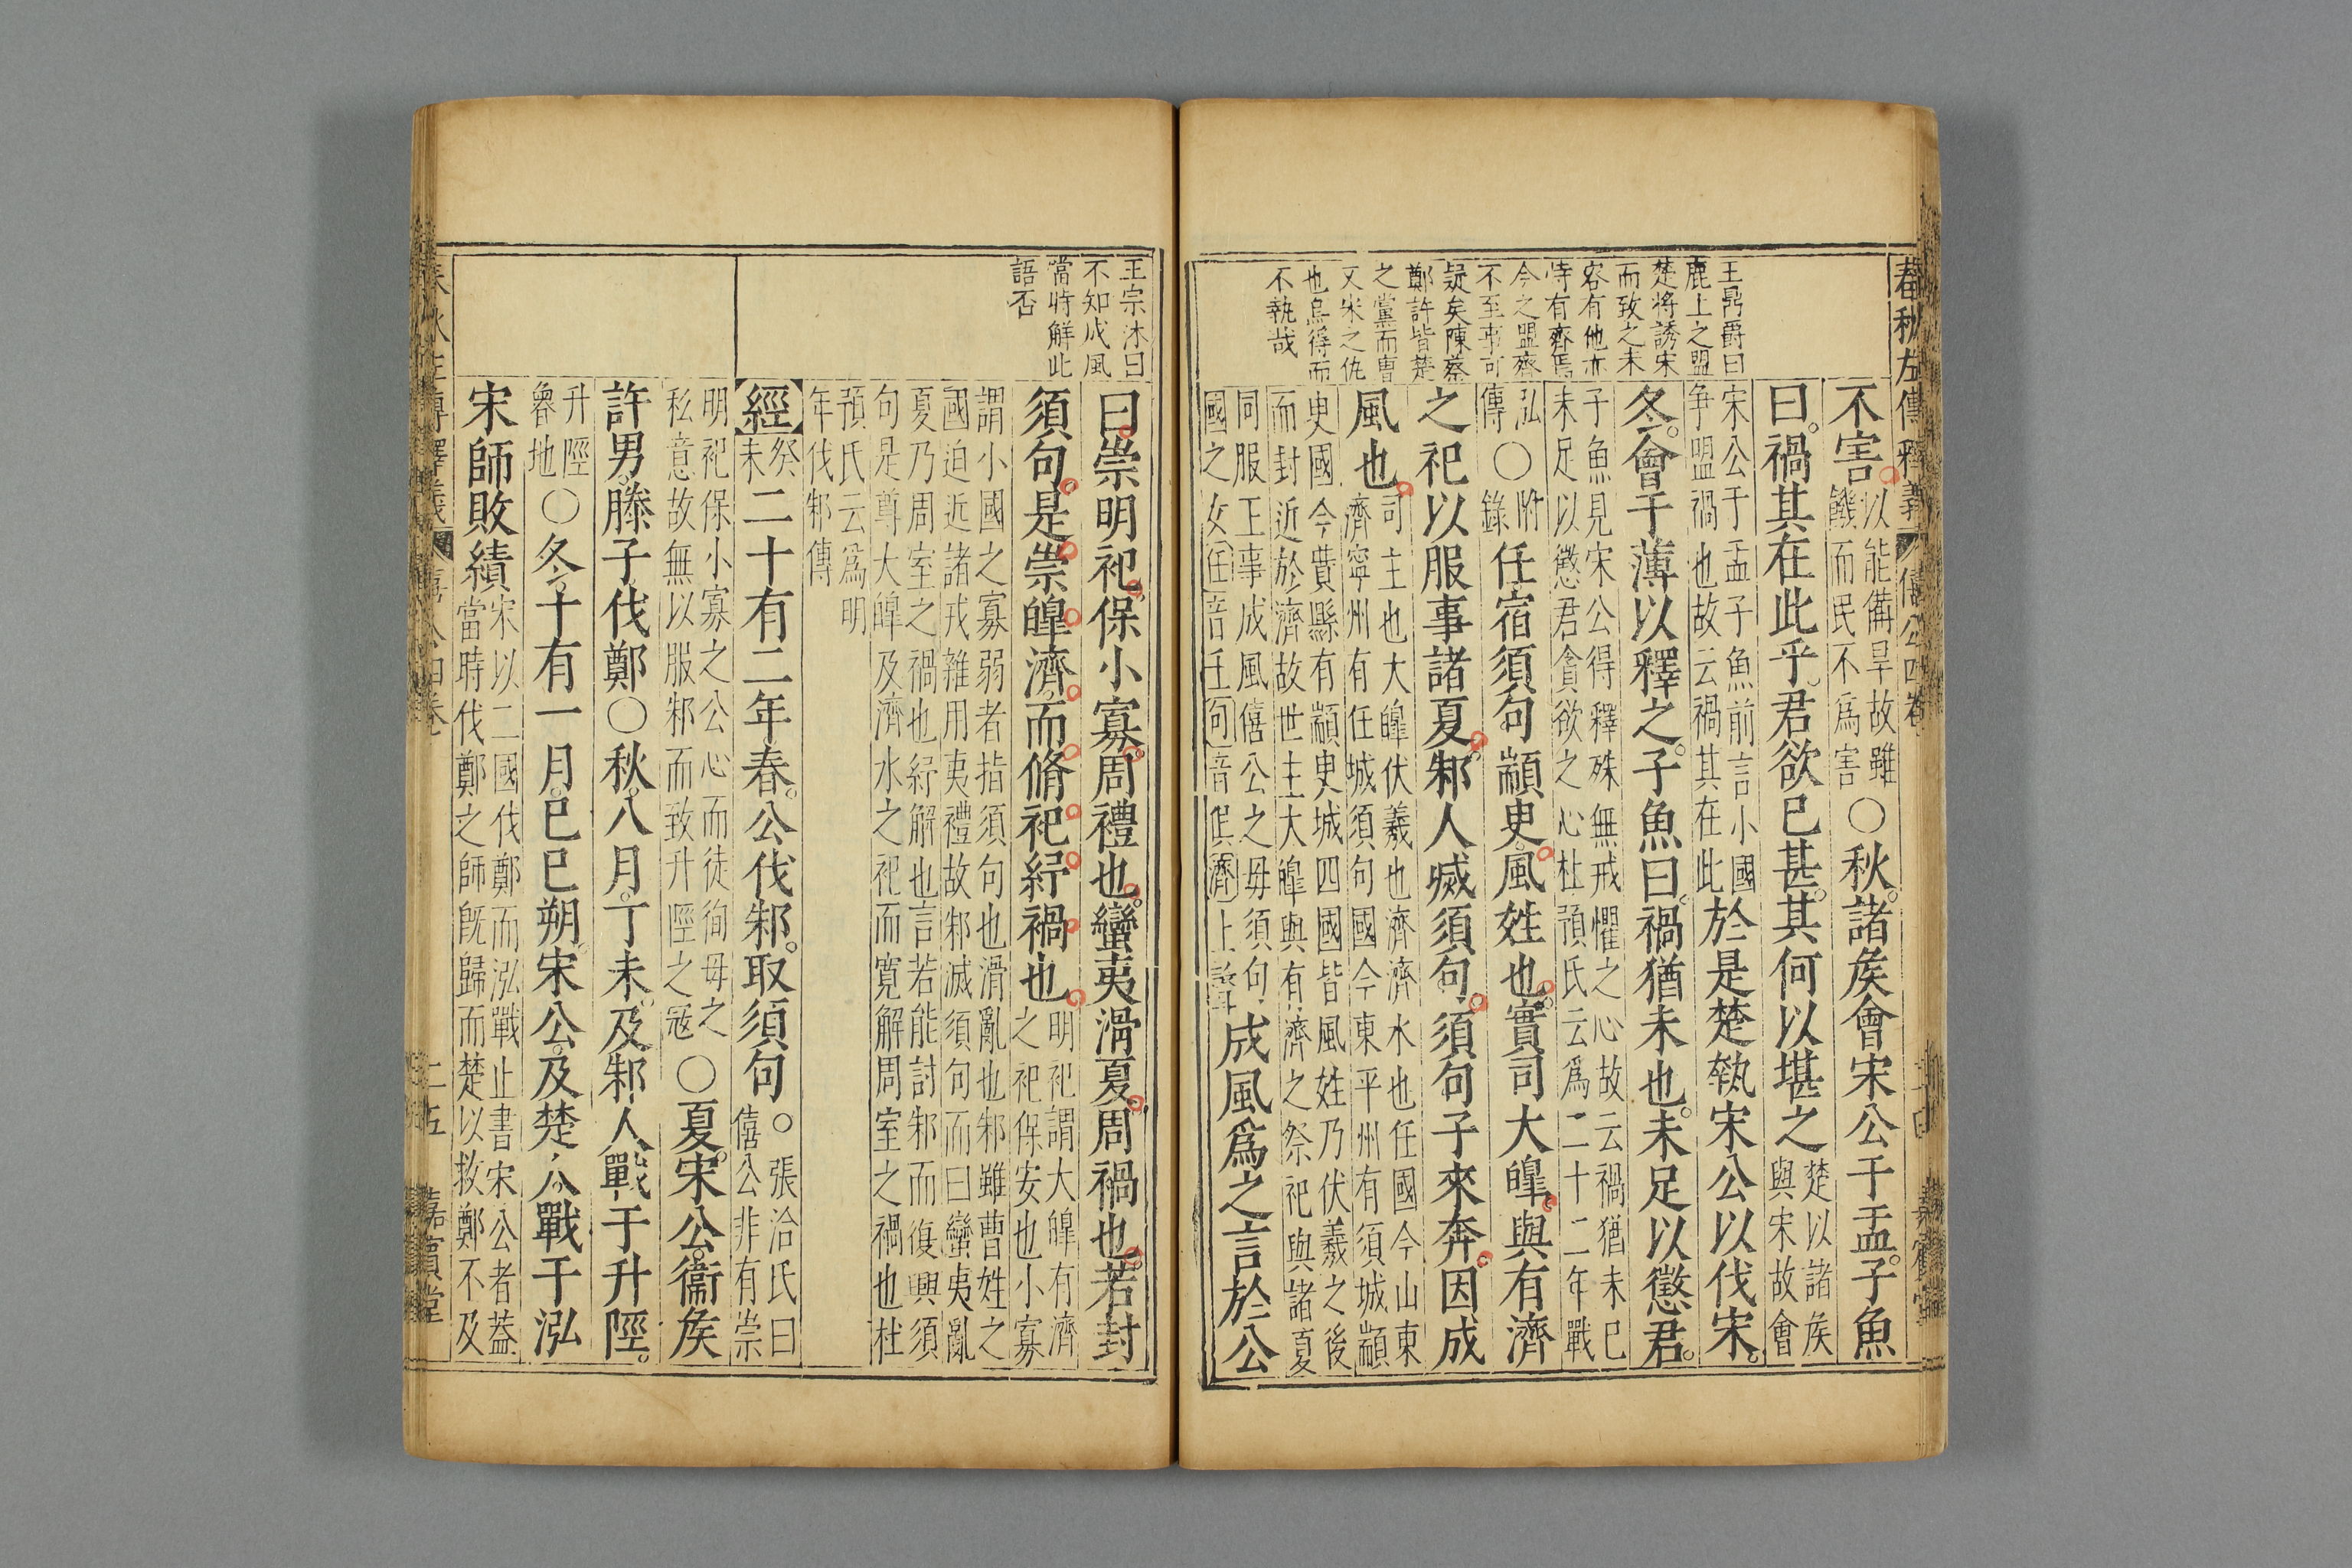 春秋左傳釋義
僖公四卷
王鼎爵曰
鹿上之盟
楚將誘宋
而致之未
容有他亦
恃有齊焉
今之盟齊
不至事可
疑矣陳蔡
鄭許皆楚
之黨而曹
又宋之仇
也烏得而
不執哉
不害以能備旱故雖饑而民不爲害〇秋諸矦會宋公于盂子魚
曰禍其在此乎君欲已甚其何以堪之楚以諸矦與宋故會
宋公于盂子魚前言小國爭盟禍也故云禍其在此於是楚執宋公以伐宋
冬會于薄以釋之子魚曰禍猶未也未足以懲君
子魚見宋公得釋殊無戒懼之心故云禍猶未已未足以懲君貪欲之心杜預氏云爲二十二年戰
泓傳〇附錄任宿須句顓臾風姓也實司大皥與有濟
之祀以服事諸夏邾人滅須句須句子來奔因成
風也司主也大皥伏羲也濟濟水也任國今山東濟寧州有任城須句國今東平州有須城顓
臾國今費縣有顓臾城四國皆風姓乃伏羲之後而封近於濟故世主大皥與有濟之祭祀與諸夏
同服王事成風僖公之母須句國之女任音壬句音俱濟上聲成風爲之言於公
王宗沐曰
不知成風
當時解此
語否
曰崇明祀保小寡周禮也蠻夷滑夏周禍也若封
須句是崇皥濟而脩祀紓禍也明祀謂大皥有濟之祀保安也小寡
謂小國之寡弱者指須句也滑亂也邾雖曹姓之國迫近諸戎雜用夷禮故邾滅須句而曰蠻夷亂
夏乃周室之禍也紓解也言若能討邾而復興須句是尊大皥及濟水之祀而寬解周室之禍也杜
預氏云爲明年伐邾傳
經癸未二十有二年春公伐邾取須句〇張洽氏曰僖公非有崇
明祀保小寡之公心而徒徇母之私意故無以服邾而致升陘之寇〇夏宋公衞矦
許男滕子伐鄭〇秋八月丁未及邾人戰于升陘
升陘魯地〇冬十有一月己巳朔宋公及楚人戰于泓
宋師敗績宋以二國伐鄭而泓戰止書宋公者葢當時伐鄭之師旣歸而楚以救鄭不及
二五
嘉賓堂